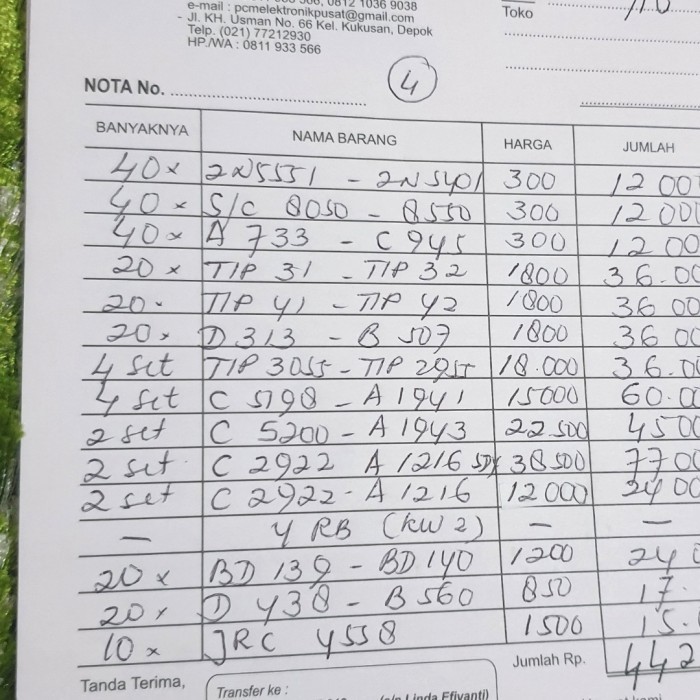 0812 1036 9038
e-mail : pcmelektronikpusat@gmail.com
- Jl. KH. Usman No. 66 Kel. Kukusan, Depok
Telp. (021) 77212930
HP./WA : 0811 933 566
Toko
4
NOTA No.
BANYAKNYA NAMA BARANG HARGA JUMLAH
40x 2N5551 - 2N5401 300 1200
40x S/C 8050 - 8550 300 1200
40x A 733 - C 945 300 1200
20 x TIP 31 - TIP 32 1800 36.00
20. TIP 41 - TIP 42 1800 3600
20x D 313 - B 507 1800 3600
4 set TIP 3055 - TIP 2955 18.000 36.00
4 set C 5198 - A 1941 15000 60.00
2 set C 5200 - A 1943 22.500 4500
2 set C 2922 A 1216 38500 7700
2 set C 2922 - A 1216 12000 2400
- 4 RB (KW2) - -
20 x BD 139 - BD 140 1200 240
20x D 438 - B 560 850 17.
10 x JRC 4558 1500 15.
Jumlah Rp. 442
Tanda Terima,
Transfer ke :
(a/n Linda Efiyanti)